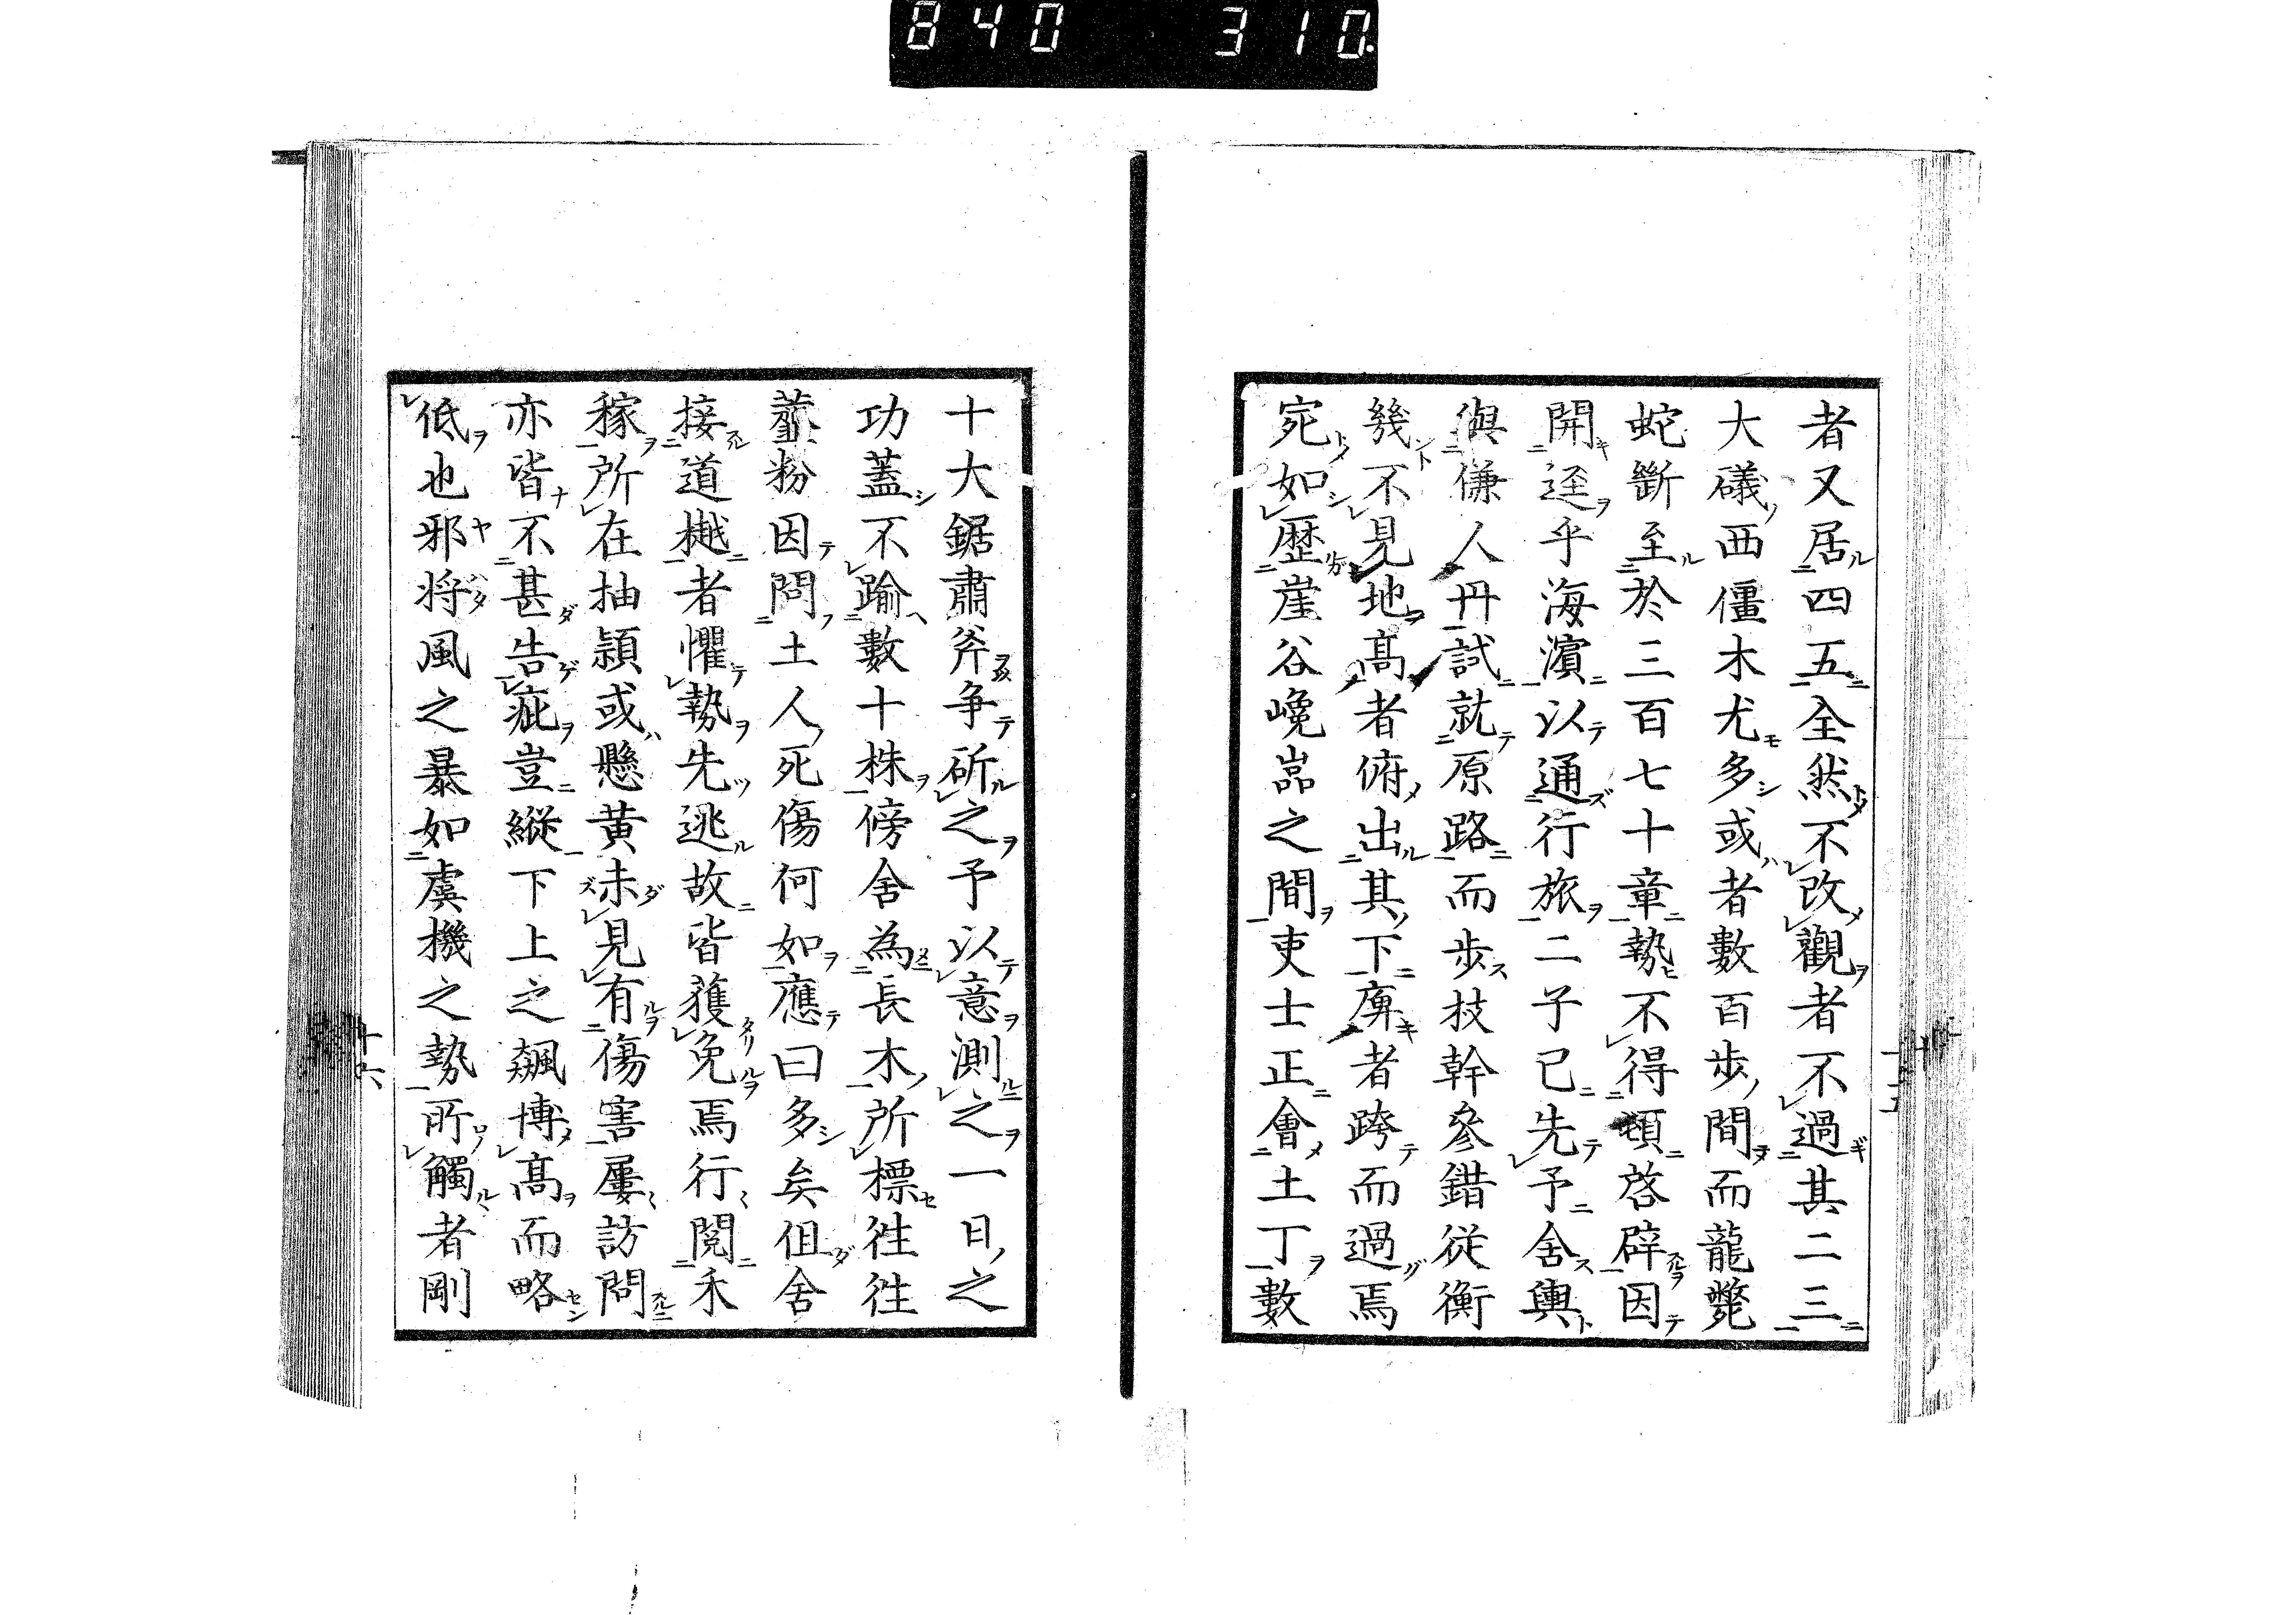 840 310.
者又居四五全然不改觀者不過其二三
大礒西僵木尤多或者數百步間而龍斃
蛇斷至於三百七十章勢不得頓啓辟因
開逕乎海濱以通行旅二子已先予舍輿
與傔人冊試就原路而步技幹參錯從衡
幾不見地高者俯出其下庳者跨而過焉
宛如歷崖谷巉嵓之間吏士正會土丁數
十大鋸肅斧争斫之予以意測之一日之
功蓋不踰數十株傍舍為長木所標往往
虀粉因問土人死傷何如應曰多矣但舍
接道樾者懼勢先逃故皆獲免焉行閱禾
稼所在抽穎或懸黄未見有傷害屢訪問
亦皆不甚告疵豈縱下上之飆博高而略
低也邪将風之暴如虞機之勢所觸者剛
十六